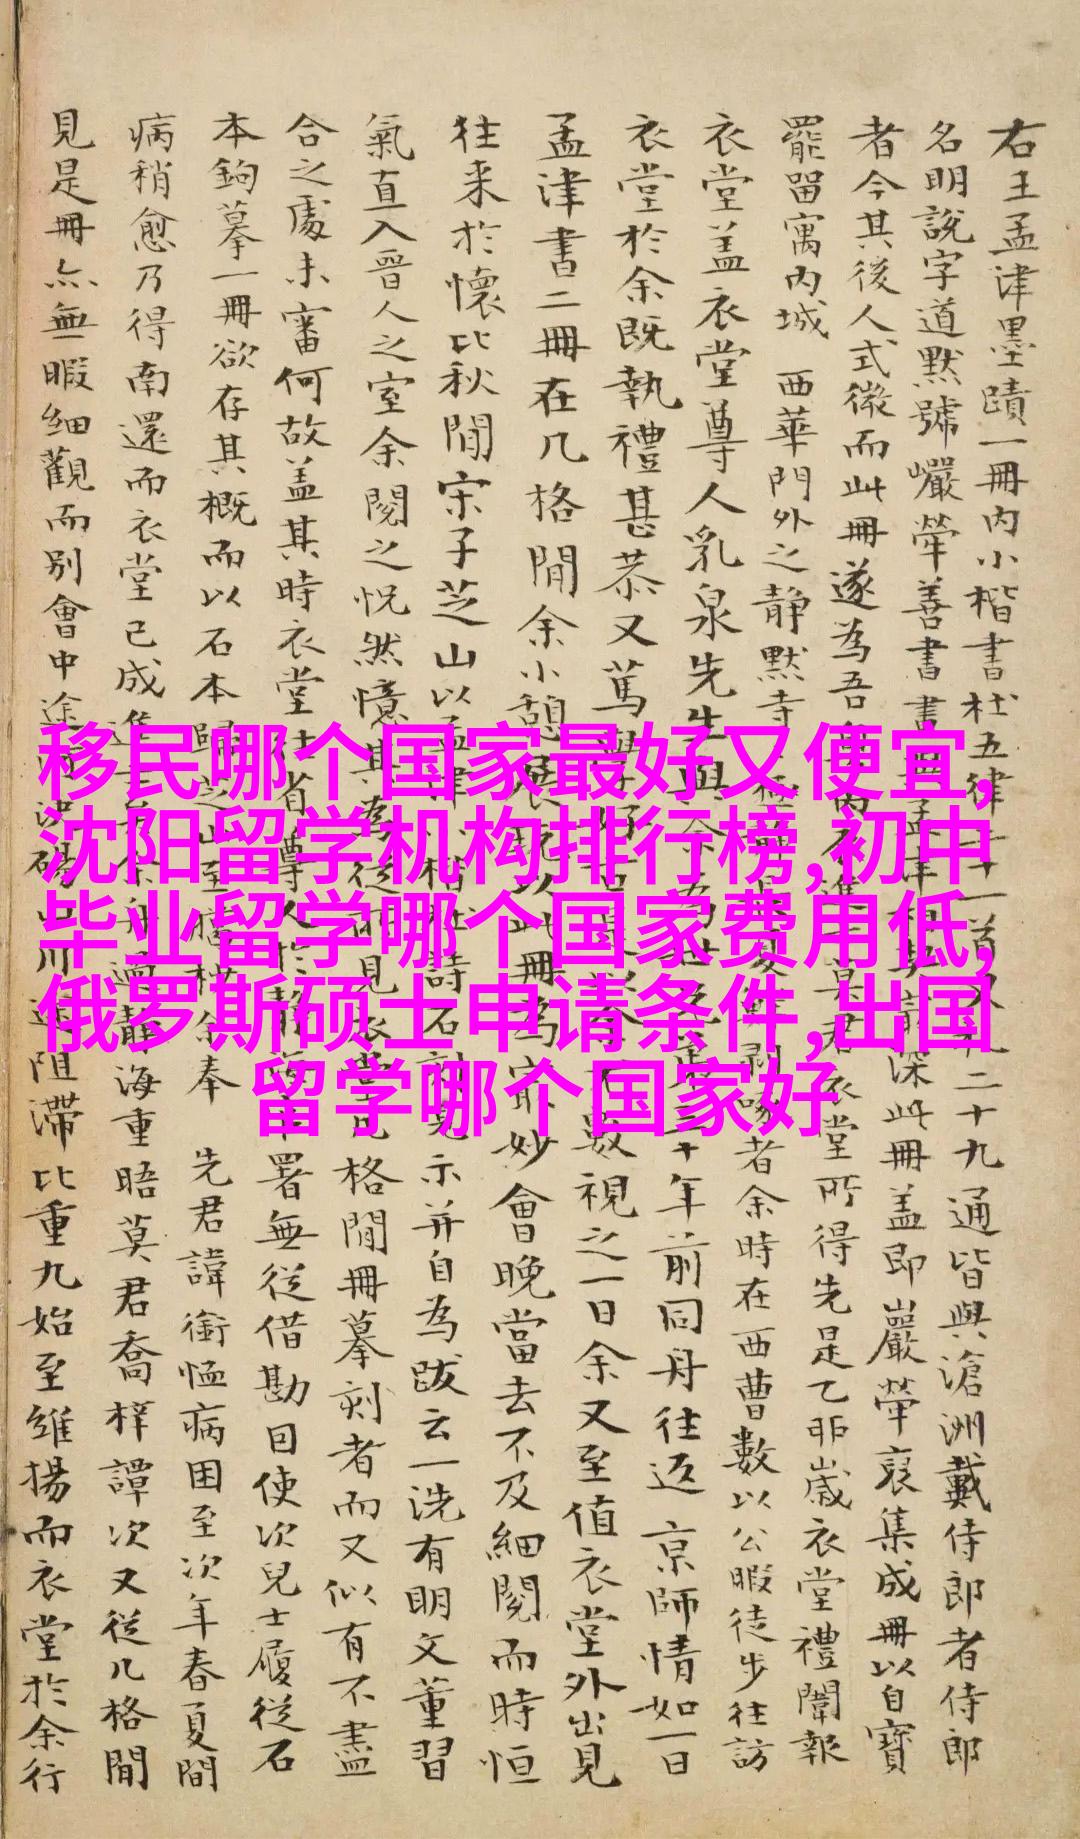 右王孟津墨蹟一冊内小楷書杜五律二十一首又札二十九通皆與滄洲戴侍郎者侍郎
名明說字道默號巖犖善書畫與孟津相契最深此冊蓋即巖犖裒集成冊以自寳
者今其後人式微而此冊遂為吾
罷留寓内城 西華門外之静默寺
衣堂蓋衣堂尊人乳泉先生與
衣堂於余既執禮甚恭又篤
孟津書二冊在几格間余小憩展
往来於懷比秋間宋子芝山以孟津
氣直入晉人之室余閱之恍然憶其
合之處未審何故蓋其時衣堂
本鉤摹一冊欲存其概而以石本歸之
病稍愈乃得南還而衣堂已成
見是冊亦無暇细觀而别會中途
移民哪个国家最好又便宜,
沈阳留学机构排行榜,初中
毕业留学哪个国家费用低,
俄罗斯硕士申请条件,出国
留学哪个国家好
堂所得先是乙卯歲衣堂禮闈報
者余時在西曹數以公暇徒步往訪
年前同舟往返 京師情如一日
數視之一日余又至值衣堂外出見
妙會晚當去不及細閱而時恒
示并自為跋云一洗有明文董習
格間冊摹刻者而又似有不盡
署無從借勘因使次兒士履從石
奉 先君諱銜恤病困至次年春夏間
海重晤莫君喬梓譚次又從几格間
阻滯比重九始至維揚而衣堂於余行